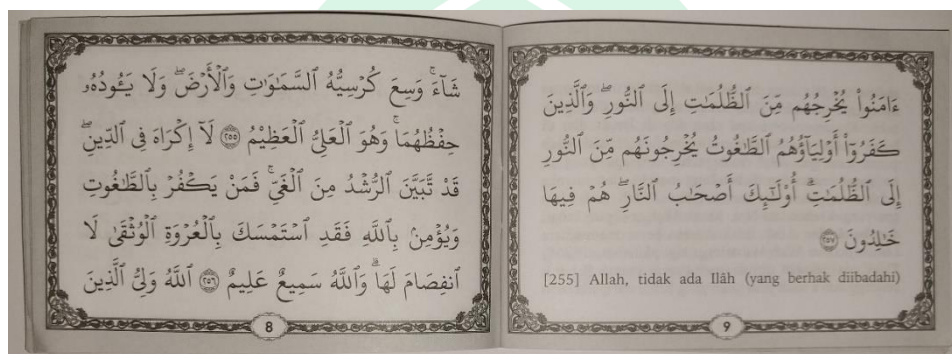 شَآءَۚ وَسِعَ كُرْسِيُّهُ ٱلسَّمَٰوَٰتِ وَٱلْأَرْضَۖ وَلَا يَـُٔودُهُۥ
حِفْظُهُمَاۚ وَهُوَ ٱلْعَلِىُّ ٱلْعَظِيْمُ ۝٢٥٥ لَآ إِكْرَاهَ فِى ٱلدِّينِۖ
قَدْ تَّبَيَّنَ ٱلرُّشْدُ مِنَ ٱلْغَىِّۚ فَمَنْ يَكْفُرْ بِٱلطَّٰغُوتِ
وَيُؤْمِنۢ بِٱللَّهِ فَقَدِ ٱسْتَمْسَكَ بِٱلْعُرْوَةِ ٱلْوُثْقَىٰ لَا
ٱنفِصَامَ لَهَاۗ وَٱللَّهُ سَمِيعٌ عَلِيمٌ ۝٢٥٦ ٱللَّهُ وَلِىُّ ٱلَّذِينَ
8
ءَامَنُوا۟ يُخْرِجُهُم مِّنَ ٱلظُّلُمَٰتِ إِلَى ٱلنُّورِۖ وَٱلَّذِينَ
كَفَرُوٓا۟ أَوْلِيَآؤُهُمُ ٱلطَّٰغُوتُ يُخْرِجُونَهُم مِّنَ ٱلنُّورِ
إِلَى ٱلظُّلُمَٰتِۗ أُو۟لَٰٓئِكَ أَصْحَٰبُ ٱلنَّارِۖ هُمْ فِيهَا
خَٰلِدُونَ ۝٢٥٧
[255] Allah, tidak ada Ilâh (yang berhak diibadahi)
9